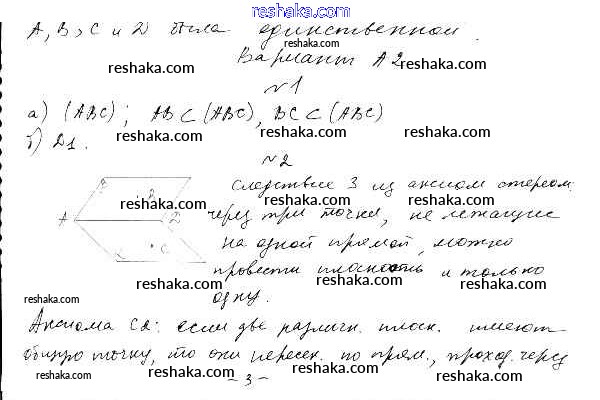 reshaka.com
А, В, С и D была единственной.
Вариант А2
reshaka.com
№1
reshaka.com
а) (АВС); АВ ⊂ (АВС), ВС ⊂ (АВС)
reshaka.com reshaka.com
б) D1.
№2
reshaka.com
β В Следствие 3 из аксиом стереом.
reshaka.com reshaka.com
А D через три точки, не лежащие
на одной прямой, можно
reshaka.com
С провести плоскость и только
reshaka.com reshaka.com
одну.
reshaka.com
Аксиома С2: если две различн. плоск. имеют
reshaka.com reshaka.com
общую точку, то они пересек. по прям., проход. через
reshaka.com reshaka.com
- 3 -